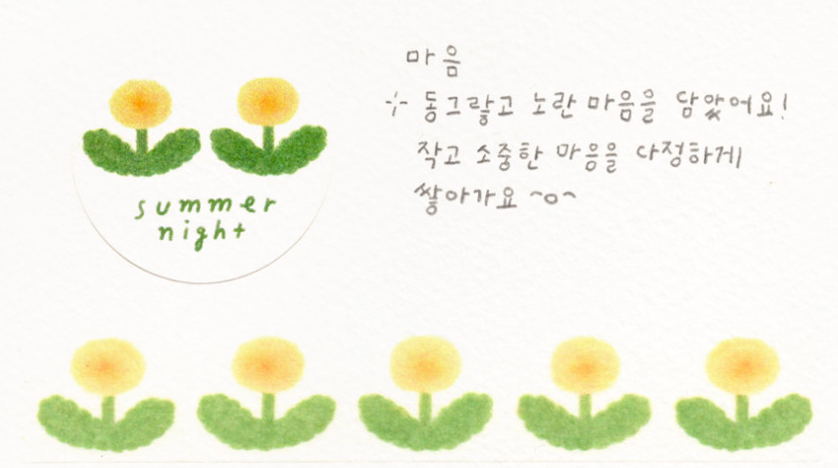 마음
동그랗고 노란 마음을 담았어요!
작고 소중한 마음을 다정하게
쌓아가요 ~o~
summer
night